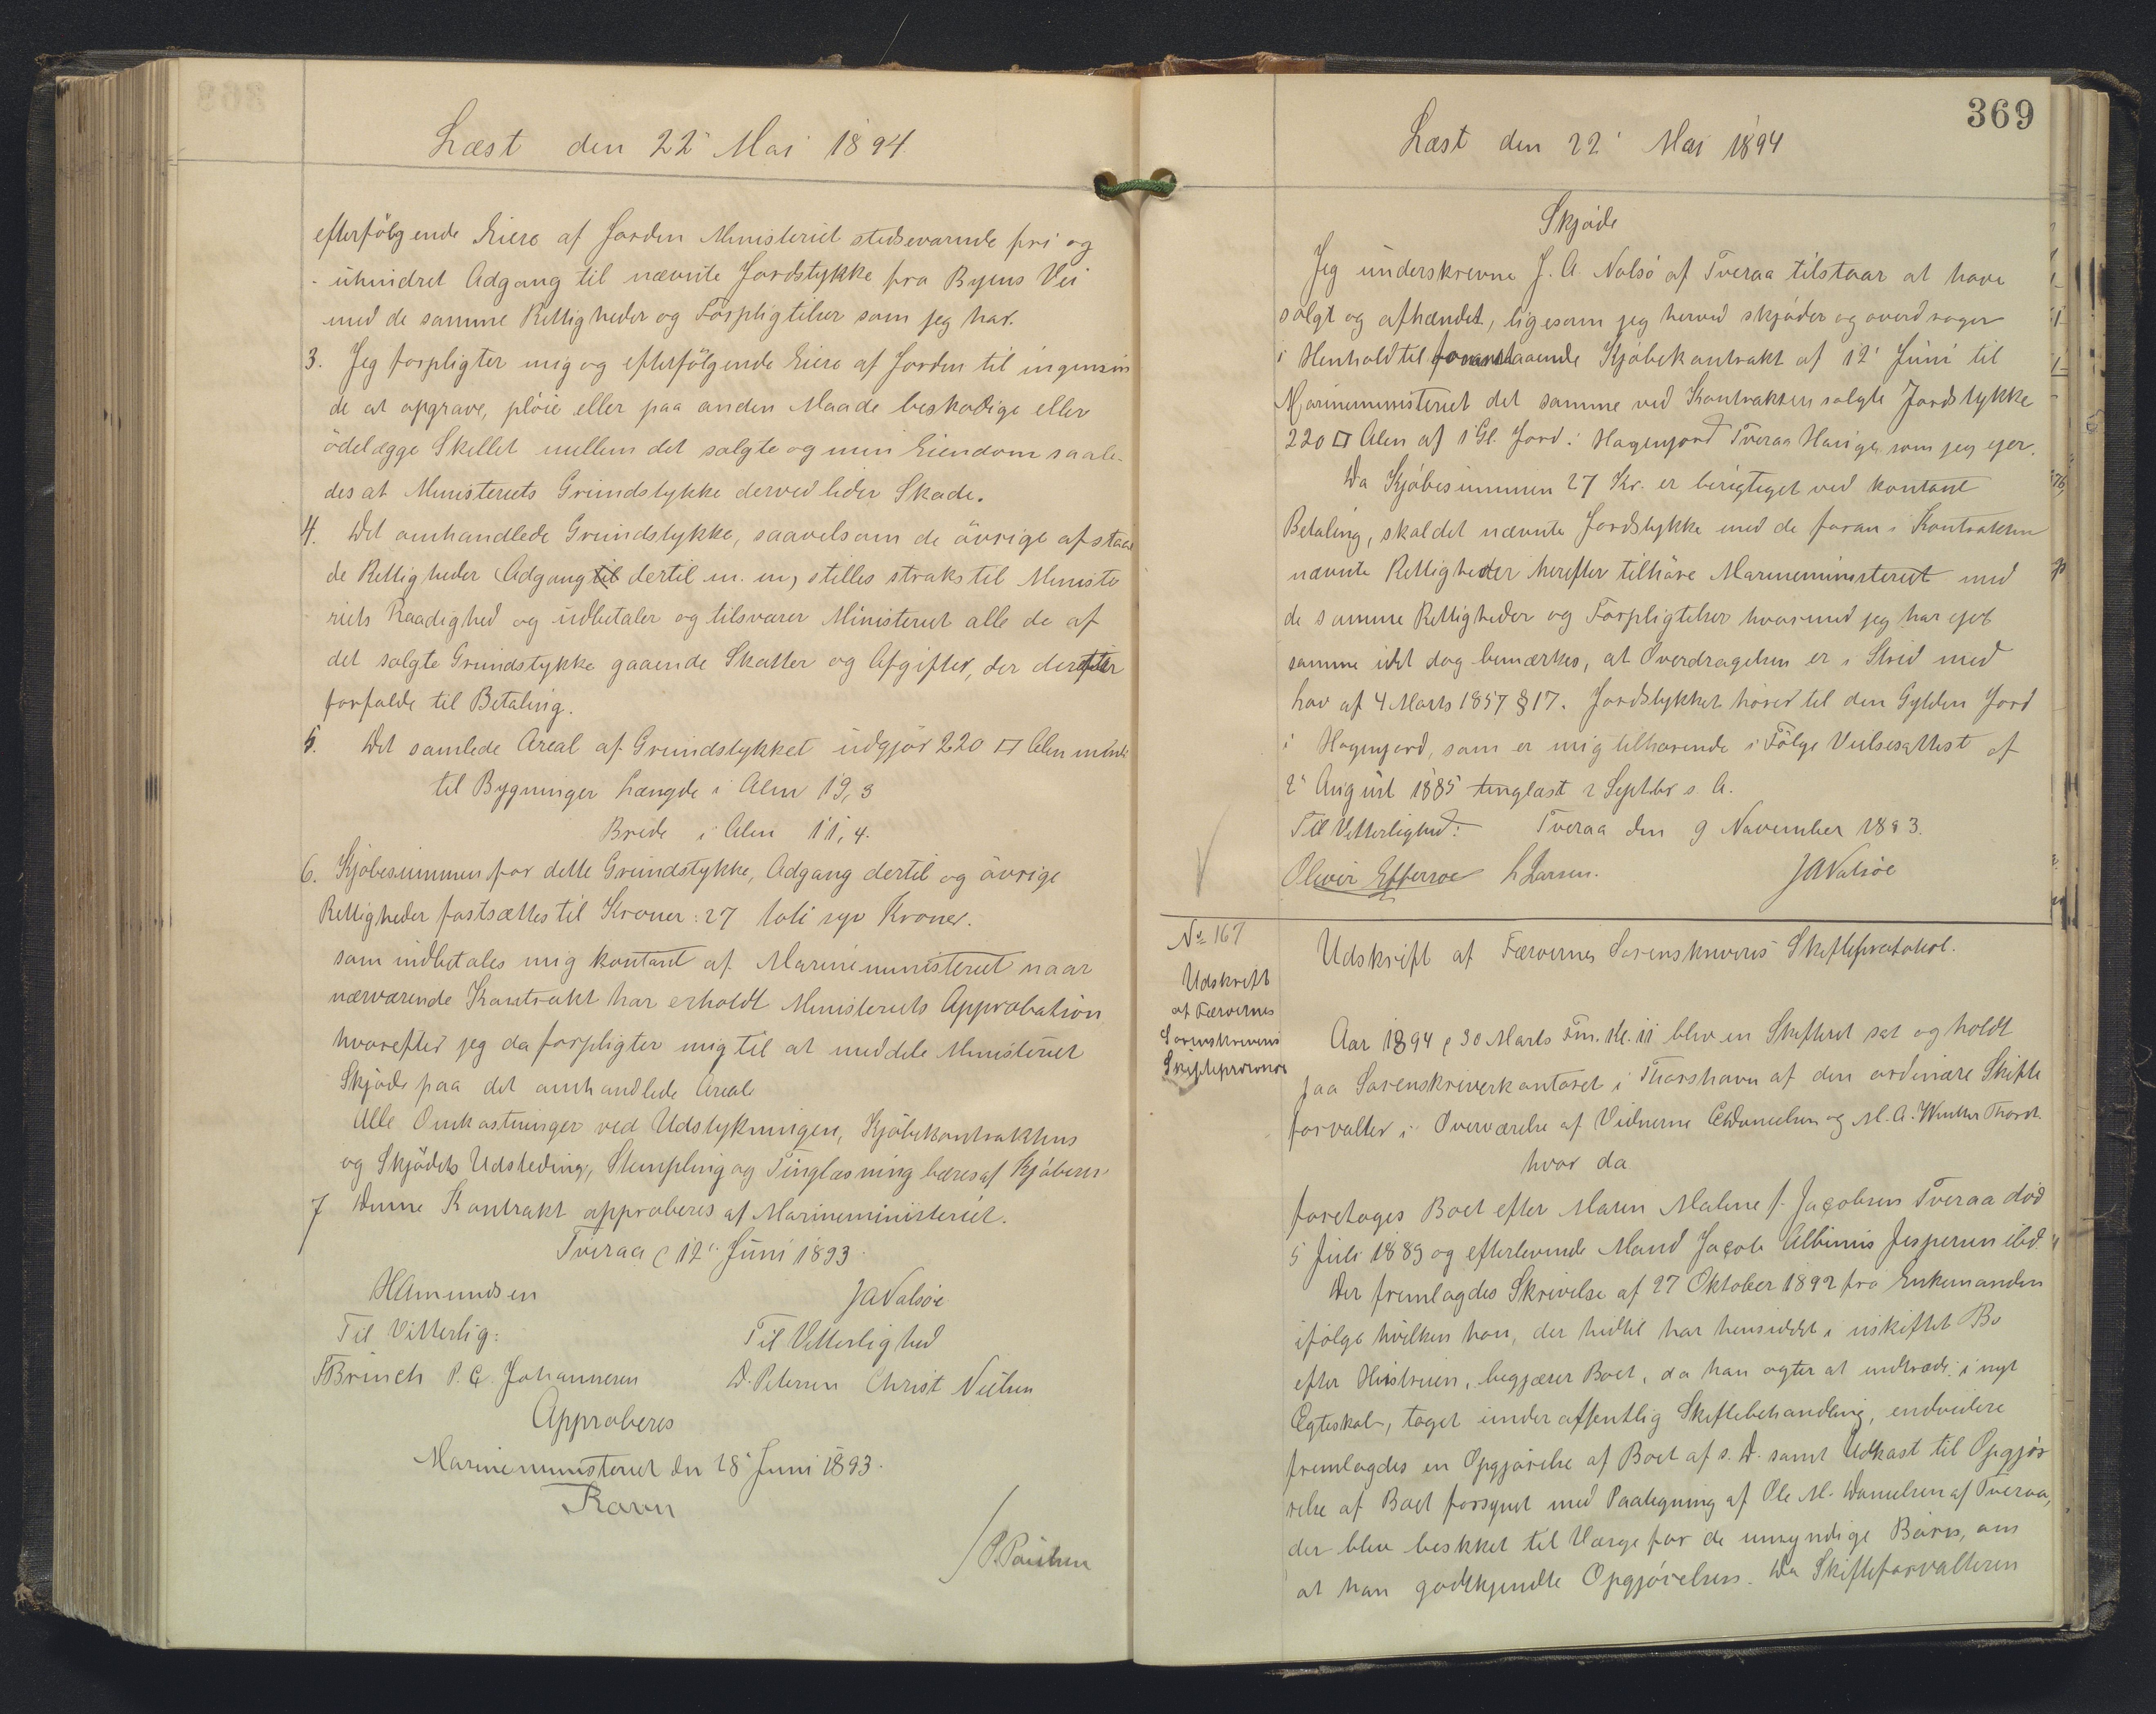 Læst den 22' Mai 1894
efterfölgende Eiere af Jorden Ministeriet stedsevarende fri og
uhindret Adgang til nævnte Jordstykke fra Byens Vei
med de samme Rettigheder og Forpligtelser som jeg har.
3. Jeg forpligter mig og efterfölgende Eiere af Jorden til ingensin
de at opgrave, plöie eller paa anden Maade beskadige eller
ödelægge Skellet mellem det solgte og min Eiendom saale-
des at Ministeriets Grundstykke derved lider Skade.
4. Det omhandlede Grundstykke, saavelsom de övrige afstaae
de Rettigheder Adgang til dertil m. m, stilles straks til Ministe
riets Raadighed og udbetaler og tilsvarer Ministeriet alle de af
det solgte Grundstykke gaaende Skatter og Afgifter, der derefter
forfalde til Betaling.
5. Det samlede Areal af Grundstykket udgjör 220 □ Alen
til Bygninger Længde i Alen 19,3
Brede i Alen 11,4.
6. Kjöbesummen for dette Grundstykke, Adgang dertil og övrige
Rettigheder fastsættes til Kroner: 27 toti syv Kroner.
som indbetales mig kontant af Marineministeriet naar
nærværende Kontrakt har erholdt Ministeriets Approbation
hvorefter jeg da forpligter mig til at meddele Ministeriet
Skjöde paa det omhandlede Areal.
Alle Omkostninger ved Udstykningen, Kjöbekontraktens
og Skjödets Udsteding, Stempling og Tinglæsning bæres af Kjöberen
7 Denne Kontrakt approberes af Marineministeriet.
Tveraa d 12' Juni 1893.
HAmundsen JANalsöe
Til Vitterlig: Til Vitterlighed
TBrinch P. C. Johannesen D. Petersen Christ Nielsen
Approberes
Marineministeriet den 28' Juni 1893.
Ravn
/P. Paulsen
369
Læst den 22' Mai 1894
Skjöde
Jeg underskrevne J. A. Nolsö af Tveraa tilstaar at have
solgt og afhændet, ligesom jeg herved skjöder og overdrager
i Henhold til foranstaaende Kjöbekontrakt af 12' Juni til
Marineministeriet det samme ved Kontrakten solgte Jordstykke
220 □ Alen af 1 Gl. Jord i Hagenjord Tveraa Hauge, som jeg ejer.
Da Kjöbesummen 27 Kr. er berigtiget ved kontant
Betaling, skal det nævnte Jordstykke med de foran i Kontrakten
nævnte Rettigheder herefter tilhöre Marineministeriet med
de samme Rettigheder og Forpligtelser hvormed jeg har ejet
samme idet dog bemærkes, at Overdragelsen er i Strid med
Lov af 4 Marts 1857 § 17. Jordstykket hörer til den Gylden Jord
i Hagenjord, som er mig tilhörende i Fölge Udlægsattest af
2' August 1885 tinglæst 2 Septbr s. A.
Til Vitterlighed: Tveraa den 9 November 1893.
Oliver Effersöe L Larsen. JANalsöe
No 167
Udskrift
af Færoernes
Sorenskriveris
Skifteprotokol
Udskrift af Færoernes Sorenskriveris Skifteprotokol.
Aar 1894 d 30 Marts Fm. Kl. 11 blev en Skifteret sat og holdt
paa Sorenskriverkontoret i Thorshavn af den ordinære Skifte
forvalter i Overværelse af Vidnerne CDanielsen og M. A. Winther Thorsh.
hvor da
foretoges Boet efter Maren Malene f. Jacobsen Tveraa död
5 Juli 1889 og efterlevende Mand Jacob Albinus Jespersen ibd.
Der fremlagdes Skrivelse af 27 Oktober 1892 fra Enkemanden
ifölge hvilken han, der hidtil har hensiddet i uskiftet Bo
efter Hustruen, begjærer Boet, da han agter at indtræde i nyt
Ægteskab, taget under offentlig Skiftebehandling, endvidere
fremlagdes en Opgjörelse af Boet af s. D. samt Udkast til Opgjö
relse af Boet forsynet med Paategning af Ole M. Danielsen af Tveraa,
der blev beskikket til Værge for de umyndige Börn, om
at han godtkjendte Opgjörelsen. Da Skifteforvalteren